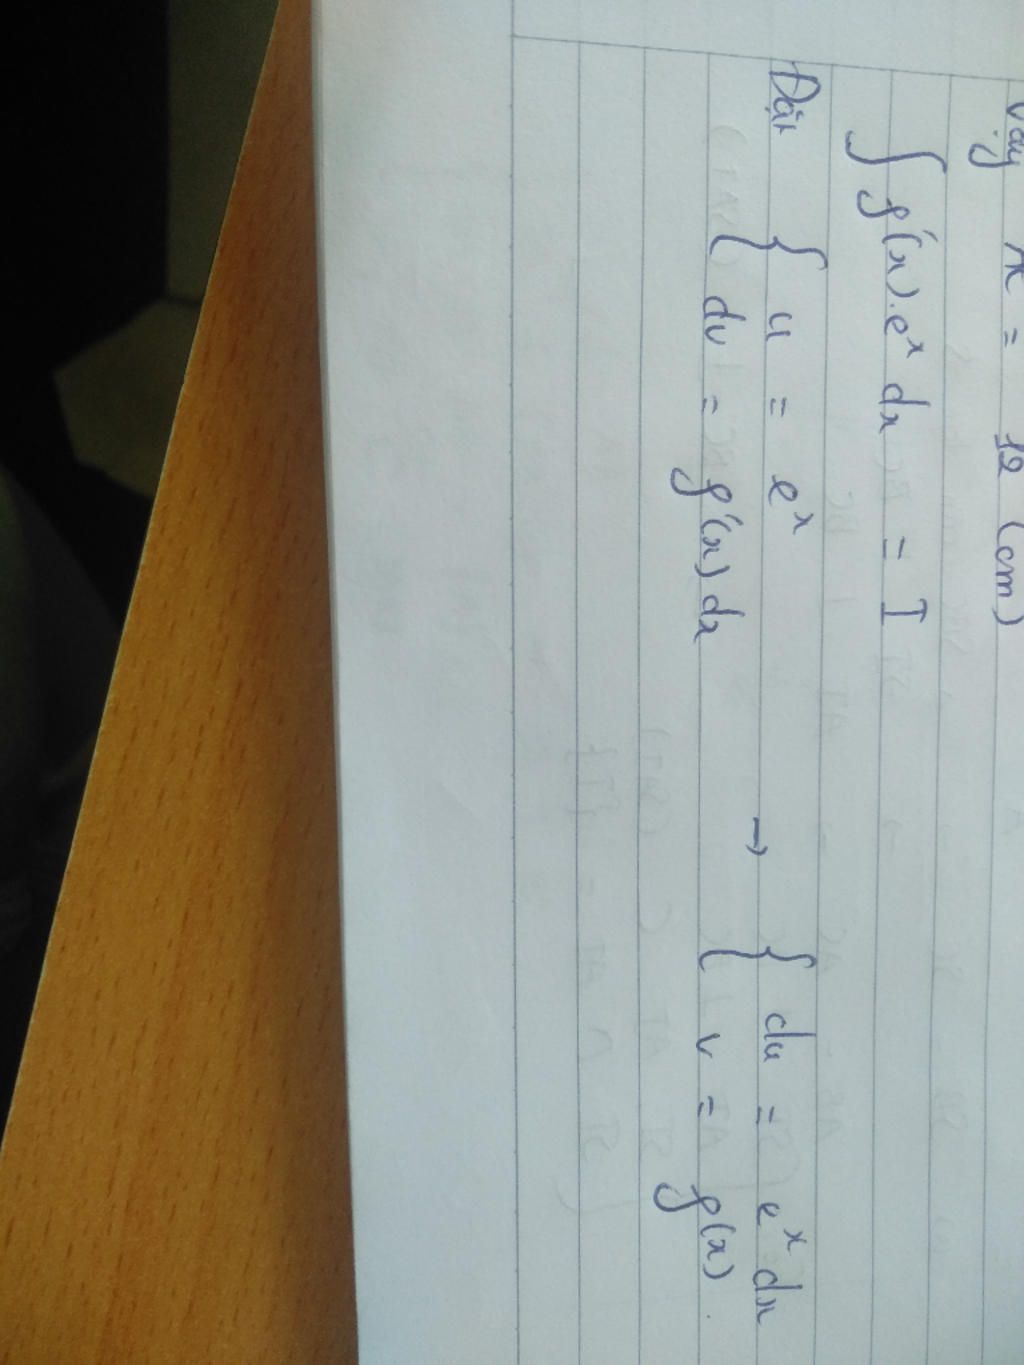 Vậy x = 12 (cm)
∫ f'(x).eˣ dx = I
Đặt { u = eˣ → { du = eˣ dx
{ dv = f'(x) dx { v = f(x).